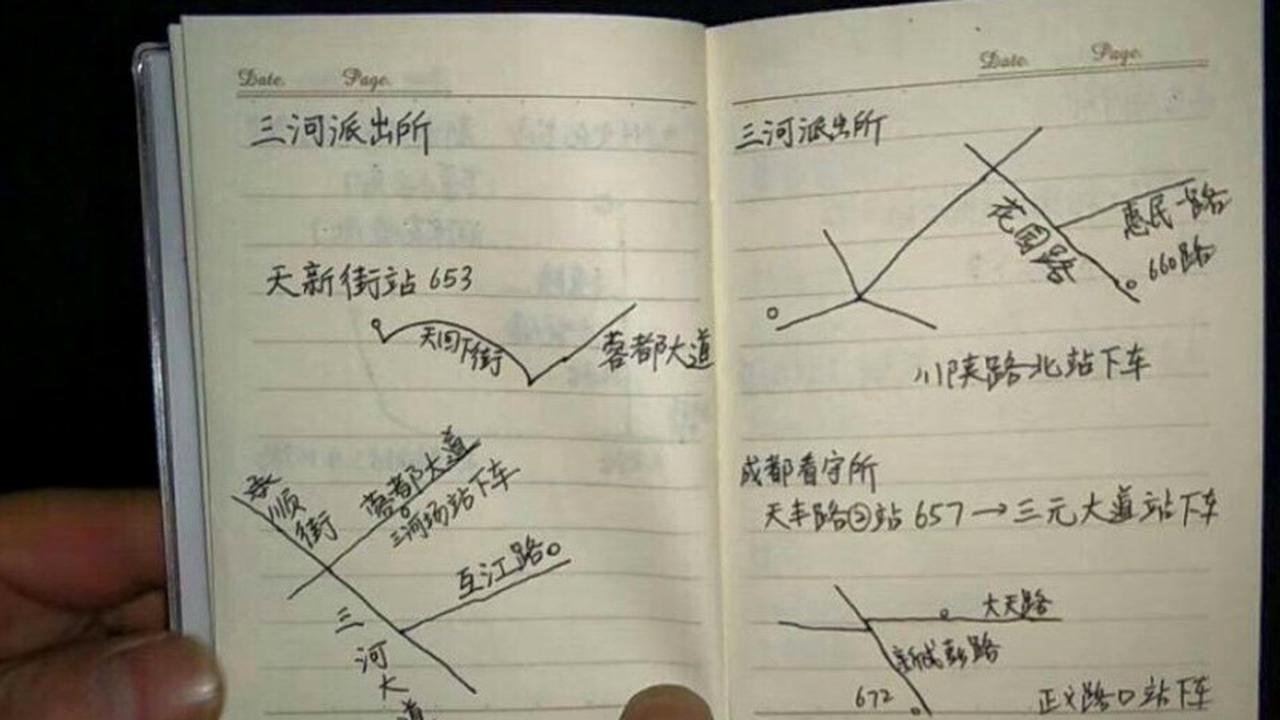 Date. Page.
三河派出所
天新街站 653
天回下街
蓉都大道
泰顺街
蓉都大道
三河场站下车
互江路
三河大道
Date. Page.
三河派出所
花园路
惠民一路
660路
川陕路北站下车
成都看守所
天丰路②站 657→三元大道站下车
大天路
新成彭路
672
正义路口站下车